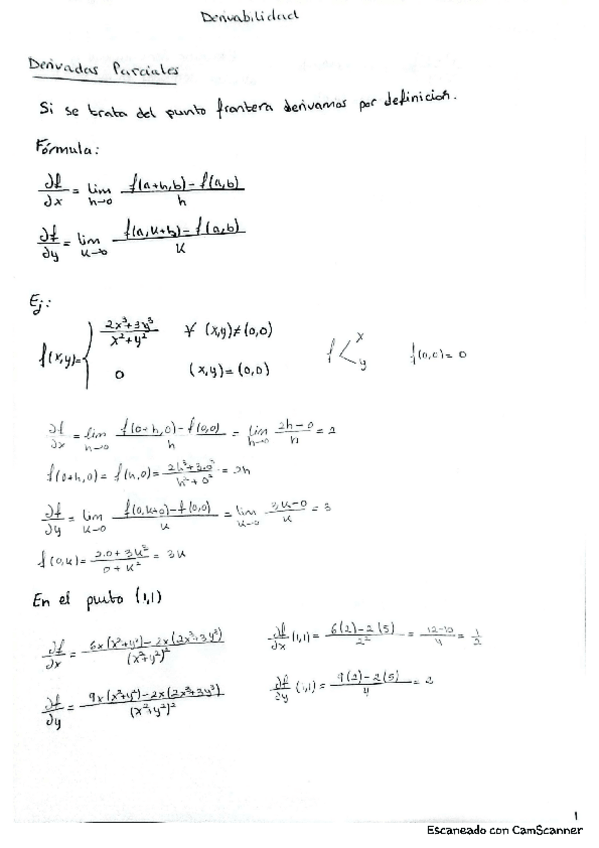 Derivabilidad
Derivadas Parciales
Si se trata del punto frontera derivamos por definicion.
Fórmula:
∂f/∂x = lim h→0 (f(a+h,b) - f(a,b))/h
∂f/∂y = lim k→0 (f(a,k+b) - f(a,b))/k
Ej:
f(x,y) = { (2x³+3y³)/(x²+y²) ∀ (x,y)≠(0,0)
0 (x,y)=(0,0)
f < x y f(0,0)=0
∂f/∂x = lim h→0 (f(0+h,0) - f(0,0))/h = lim h→0 (2h-0)/h = 2
f(0+h,0) = f(h,0) = (2h³+3·0³)/(h²+0²) = 2h
∂f/∂y = lim k→0 (f(0,k+0) - f(0,0))/k = lim k→0 (3k-0)/k = 3
f(0,k) = (2·0+3k³)/(0+k²) = 3k
En el punto (1,1)
∂f/∂x = (6x(x²+y²) - 2x(2x³+3y³))/(x²+y²)² ∂f/∂x (1,1) = (6(2)-2(5))/2² = (12-10)/4 = 1/2
∂f/∂y = (9x(x²+y²) - 2x(2x³+3y³))/(x²+y²)² ∂f/∂y (1,1) = (9(2)-2(5))/4 = 2
1
Escaneado con CamScanner